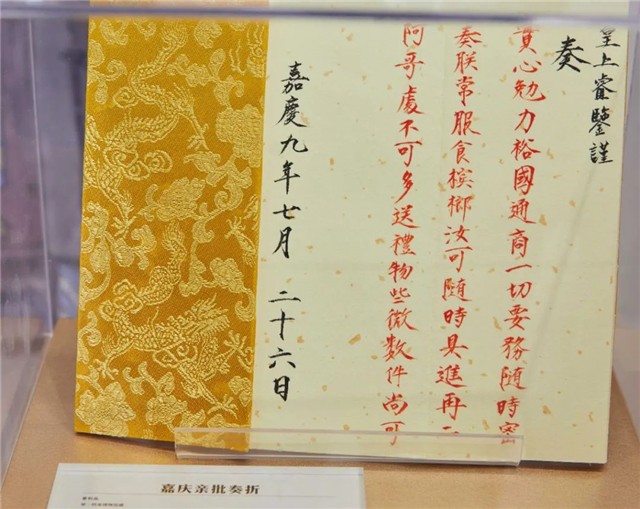 呈上睿鑒謹
奏
實心勉力裕國通商一切要務随時密
奏朕常服食槟榔汝可随時具進再二
阿哥處不可多送禮物些微數件尚可
嘉慶九年七月 二十六日
嘉庆亲批奏折